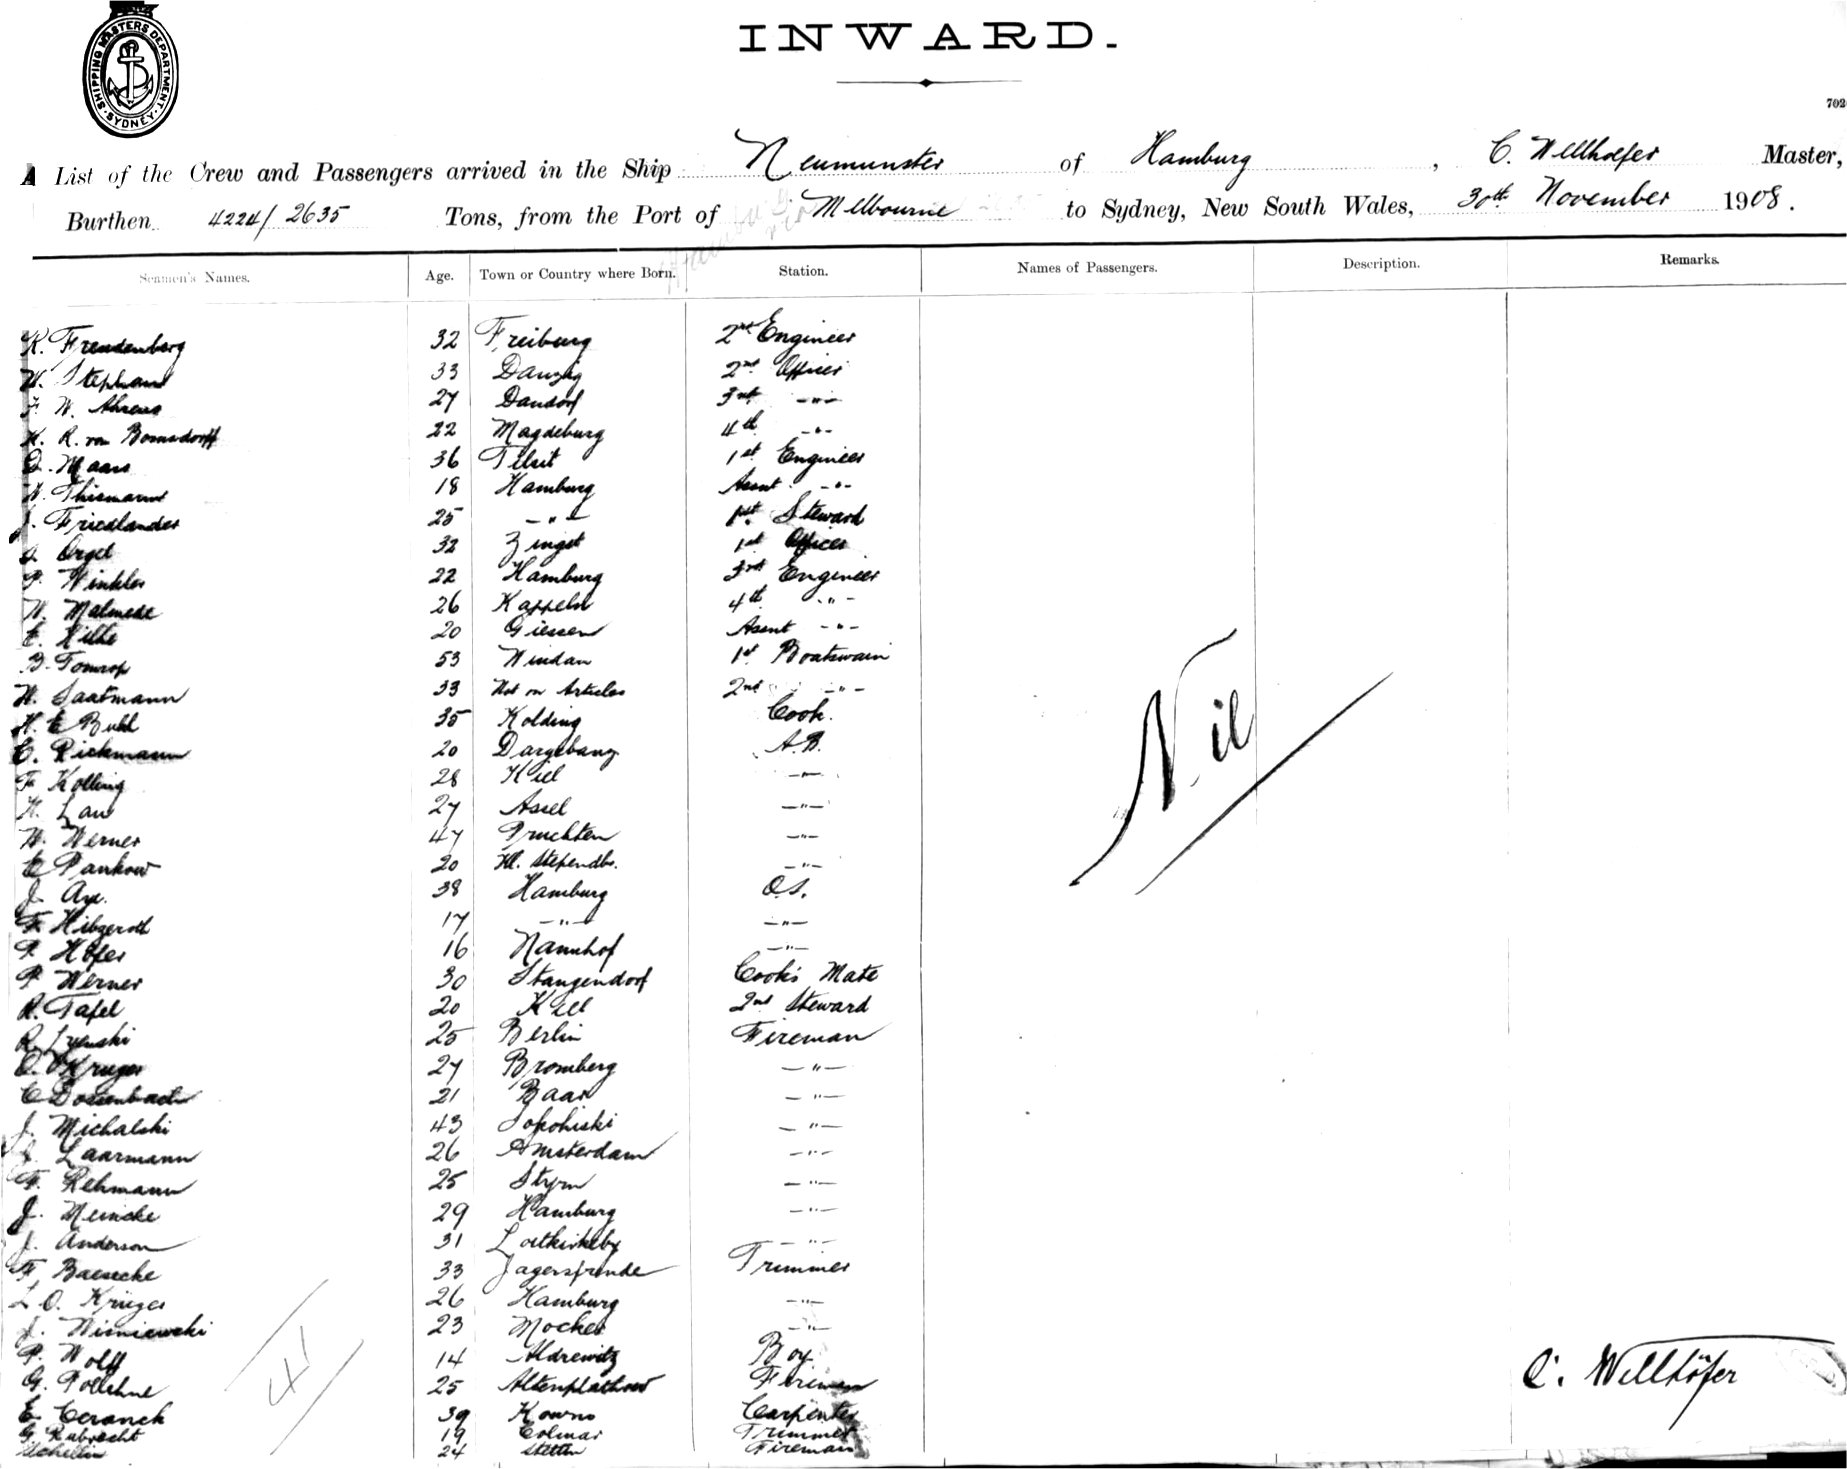 SHIPPING MASTERS DEPARTMENT. SYDNEY.
INWARD.
702
A List of the Crew and Passengers arrived in the Ship Neumunster of Hamburg, C. Wellhoefer Master,
Burthen 4224/2635 Tons, from the Port of Melbourne to Sydney, New South Wales, 30th November 1908.
Seamen's Names. Age. Town or Country where Born. Station. Names of Passengers. Description. Remarks.
K. Freudenberg 32 Freiburg 2nd Engineer
W. Stephan 33 Danzig 2nd Officer
F. W. Ahrens 27 Dandorf 3rd -"-
K. R. von Bomsdorff 22 Magdeburg 4th -"-
Maass 36 Tilsit 1st Engineer
Thiemann 18 Hamburg Assnt. -"-
J. Friedlander 25 -"- 1st Steward
Orgel 32 Zingst 1st Officer
P. Winkler 22 Hamburg 3rd Engineer
W. Malmede 26 Kappeln 4th -"-
E. Hilke 20 Giessen Assnt -"-
B. 53 Windau 1st Boatswain
W. Saatmann 33 Not on Articles 2nd -"-
H. E. Buhl 35 Kolding Cook.
C. Rickmann 20 Dargebanz A.B.
F. Kolling 28 Kiel -"-
K. Lau 27 Assel -"-
W. Werner 47 Pruchten -"-
E. Pankow 20 Kl. -"-
J. Axe. 38 Hamburg O.S.
F. 17 -"- -"-
P. Höfer 16 Naunhof -"-
P. Werner 30 Stangendorf Cook's Mate
R. Tafel 20 Kiel 2nd Steward
R. 25 Berlin Fireman
O. Kruger 27 Bromberg -"-
C. Dossenbach 21 Baar -"-
J. Michalski 43 -"-
Laarmann 26 Amsterdam -"-
F. Rehmann 25 Styrum -"-
J. Meincke 29 Hamburg -"-
J. Anderson 31 -"-
F. Baesecke 33 Jagersfreude Trimmer
L. O. Krüger 26 Hamburg -"-
J. Wisniewski 23 Mocker -"-
P. Wolff 14 Boy
G. 25 Altenplathow Fireman
E. Ceranck 39 Kowno Carpenter
G. Rubrecht 19 Colmar Trimmer
Schellin 24 Stettin Fireman
Nil
41
C. Wellhöfer